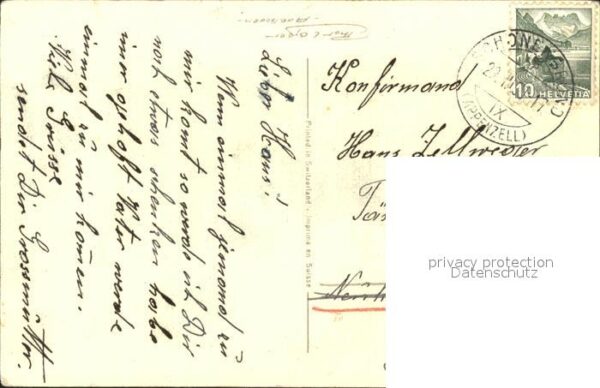 Lieber Hans!
Wenn einmal jemand zu
mir komt so werde ich Dir
noch etwas schenken habe
imer gehofft Vater werde
einmal zu mir komen.
Viele Grüsse
sendet Dir Grossmutter.
Printed in Switzerland - Imprimé en Suisse
Konfirmand
Hans Zellweger
SCHÖNENGRUND
IX
(APPENZELL)
10
HELVETIA
privacy protection
Datenschutz